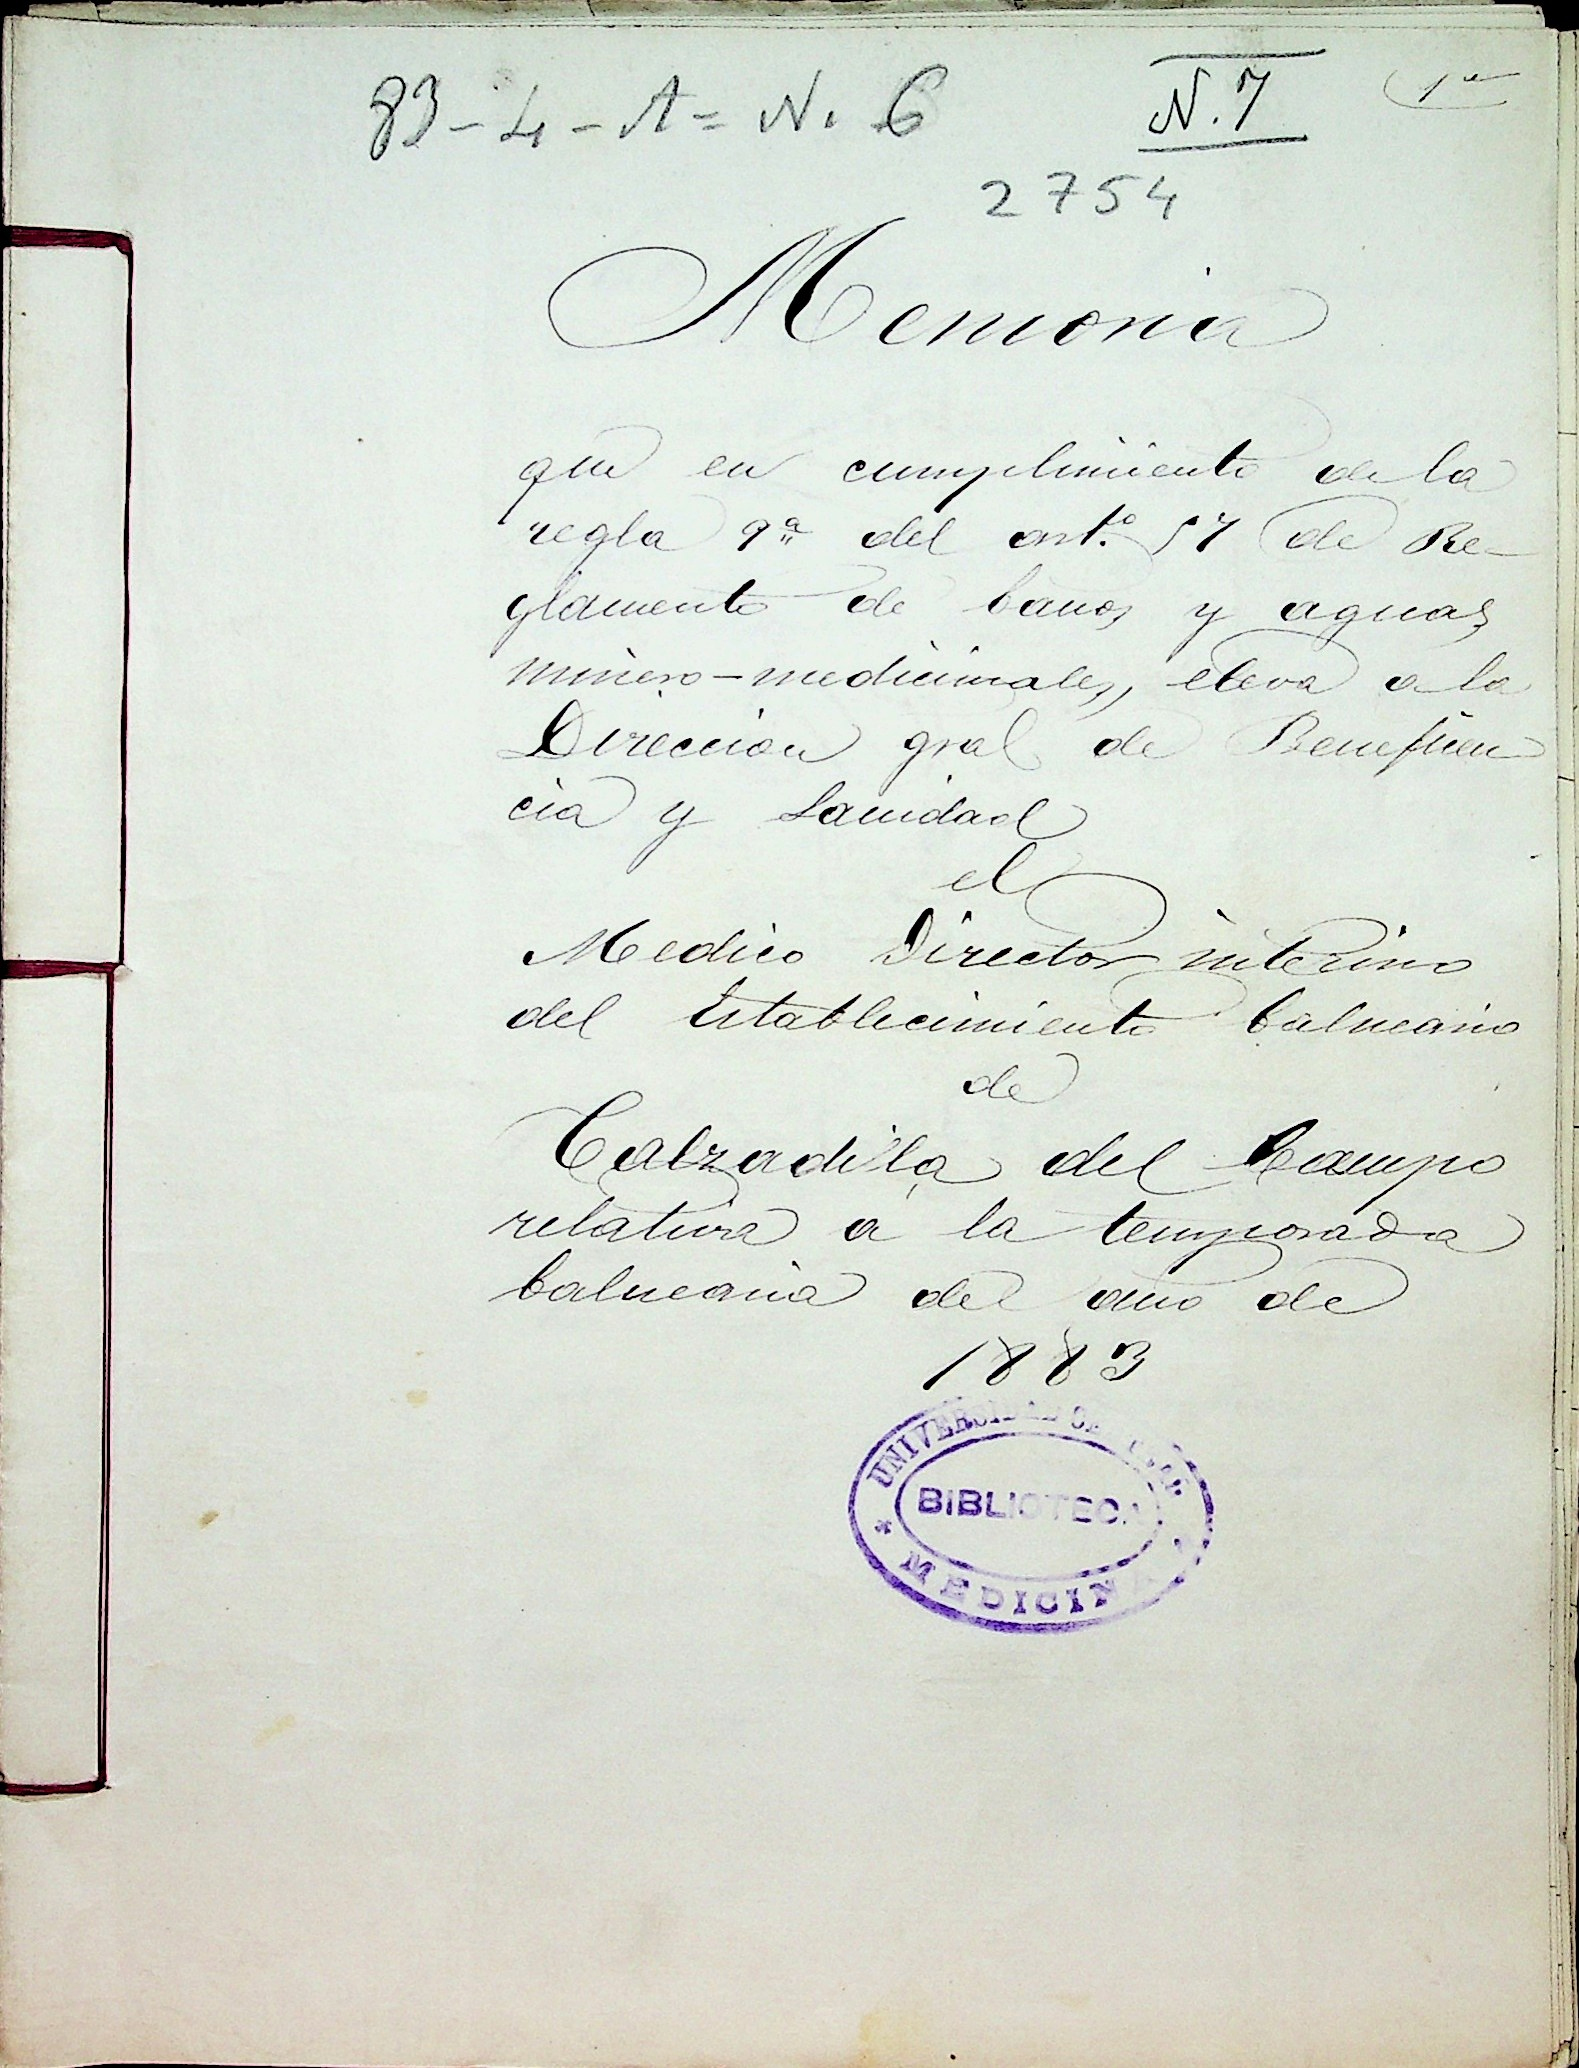 83-4-A=N. 6
N. 7
1ª
2754
Memoria
que en cumplimiento de la
regla 9ª del art.º 57 de Re-
glamento de baños y aguas
minero-medicinales, eleva a la
Direccion gral de Beneficen
cia y Sanidad
el
Medico Director interino
del Establecimiento balneario
de
Calzadilla del Campo
relativa a la temporada
balnearia del año de
1883
UNIVERSIDAD
BIBLIOTECA
MEDICINA